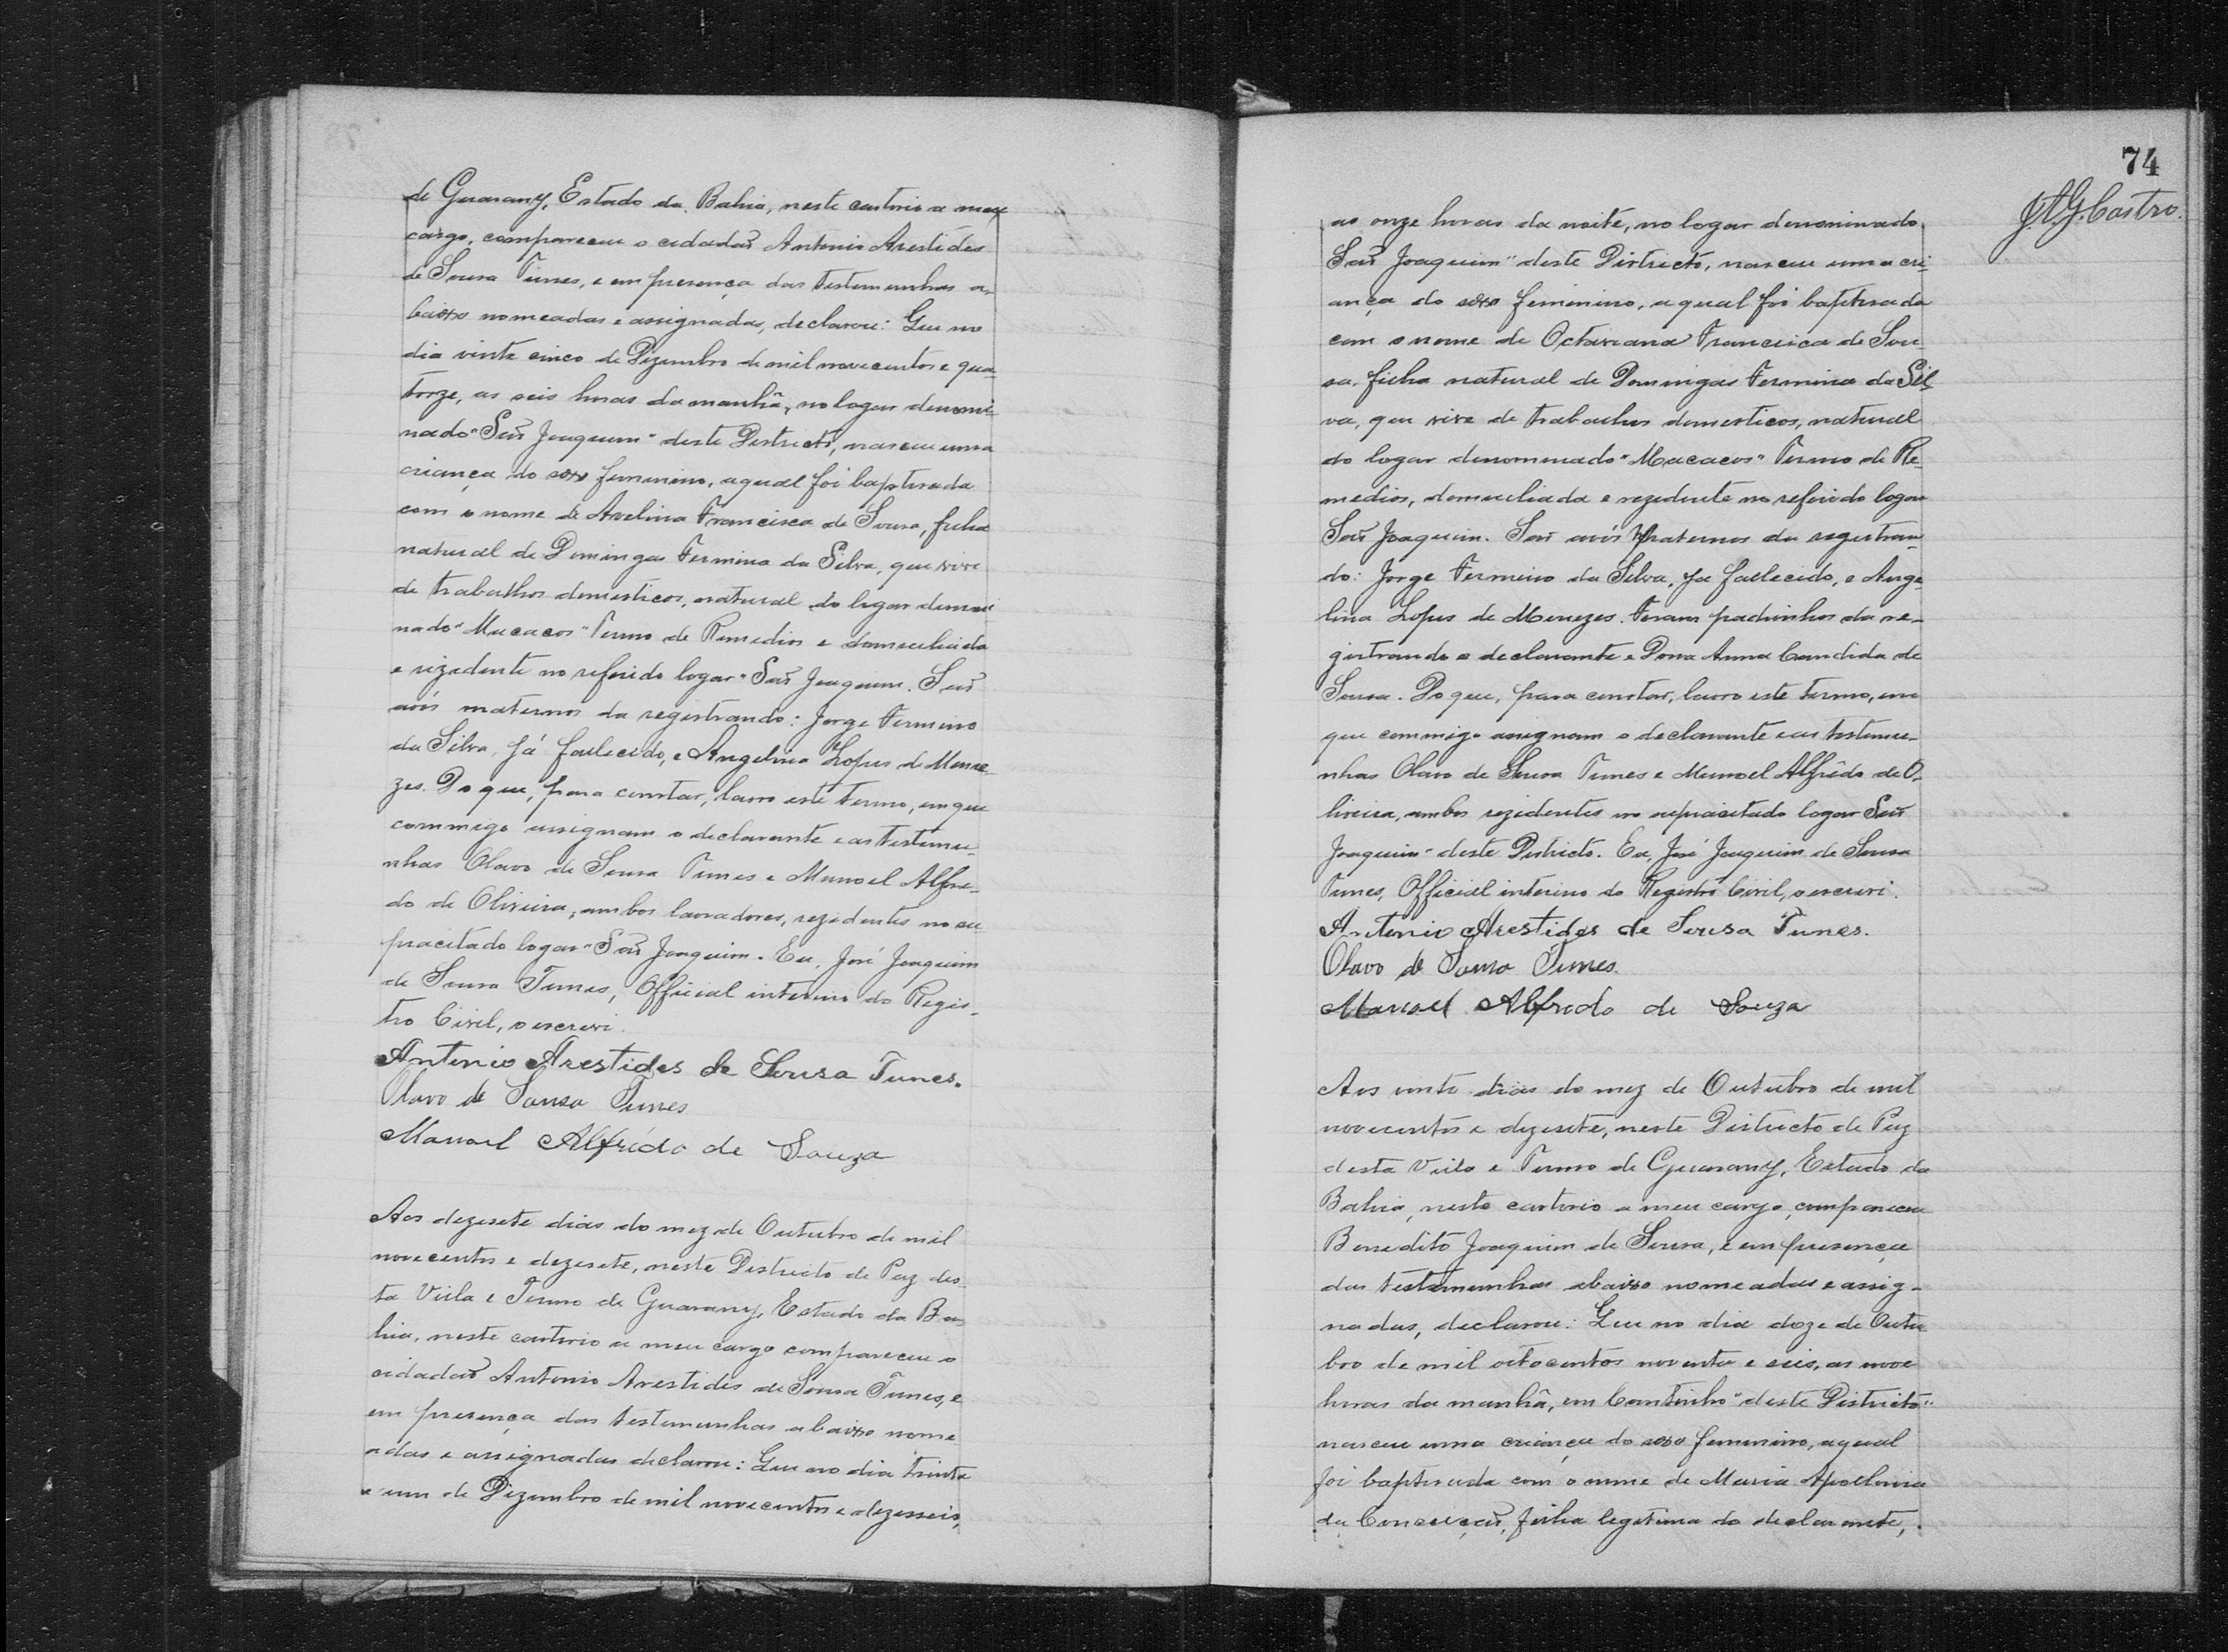 de Guarany, Estado da Bahia, neste cartorio a meu
cargo, compareceu o cidadaõ Antonio Arestides
de Sousa Tunes, e em presença das testemunhas a-
baixo nomeadas e assignadas, declarou: Que no
dia vinte cinco de Dizembro de mil novecentos e qua-
torze, as seis horas da manhã, no logar denomi-
nado "Saõ Joaquim" deste Districto, nasceu uma
criança do sexo femenino, a qual foi baptisada
com o nome de Avelina Francisca de Sousa, filha
natural de Domingas Fermina da Silva, que vive
de trabalhos domesticos, natural do logar denomi
nado "Macacos" Termo de Remedios e domiciliada
e rezidente no referido logar "Saõ Joaquim. Saõ
avós maternos da registrando: Jorge Fermino
da Silva, já fallecido, e Angelina Lopes de Mene-
zes. Do que, para constar, lavro este termo, em que
commigo assignam o declarante e as testemu-
nhas Olavo de Sousa Tunes e Manoel Alfre-
do de Oliveira, ambos lavradores, rezidentes no su
pracitado logar "Saõ Joaquim. Eu, José Joaquim
de Sousa Tunes, Official interino do Regis-
tro Civil, o escrevi.
Antonio Arestides de Sousa Tunes.
Olavo de Sousa Tunes
Manoel Alfrêdo de Souza
Aos dezesete dias do mez de Outubro de mil
novecentos e dezesete, neste Districto de Paz des-
ta Villa e Termo de Guarany, Estado da Ba-
hia, neste cartorio a meu cargo compareceu o
cidadaõ Antonio Arestides de Sousa Tunes, e
em presença das testemunhas abaixo nome
adas e assignadas declarou: Que no dia trinta
e um de Dizembro de mil novecentos e dezesseis,
74
J.A.G. Castro.
as onze horas da noite, no logar denominado
Saõ Joaquim" deste Districto, nasceu uma cri-
ança do sexo feminino, a qual foi baptisada
com o nome de Octaviana Francisca de Sou
sa, filha natural de Domingas Fermina da Sil-
va, que vive de trabalhos domesticos, natural
do logar denominado "Macacos" Termo de Re-
medios, domiciliada e rezidente no referido logar
Saõ Joaquim. Saõ avós maternos da registran-
do: Jorge Fermino da Silva, já fallecido, e Ange-
lina Lopes de Menezes. Foram padrinhos da re-
gistrando o declarante e Dona Anna Candida de
Sousa. Do que, para constar, lavro este termo, em
que commigo assignam o declarante e as testemu-
nhas Olavo de Sousa Tunes e Manoel Alfrêdo de O-
liveira, ambos rezidentes no supracitado logar Saõ
Joaquim" deste Districto. Eu, José Joaquim de Sousa
Tunes, Official interino do Registro Civil, o escrevi.
Antonio Arestides de Sousa Tunes.
Olavo de Sousa Tunes.
Manoel Alfredo de Souza
Aos vinte dias do mez de Outubro de mil
novecentos e dezesete, neste Districto de Paz
desta Villa e Termo de Guarany, Estado da
Bahia, neste cartorio a meu cargo, compareceu
Benedito Joaquim de Sousa, e em presença
das testemunhas abaixo nomeadas e assig-
nadas, declarou: Que no dia doze de Outu
bro de mil oitocentos noventa e seis, as nove
horas da manhã, em Cantinho" deste Districto"
nasceu uma criança do sexo femenino, a qual
foi baptisada com o nome de Maria Apollonia
da Conceiçaõ, filha legitima do declarante,